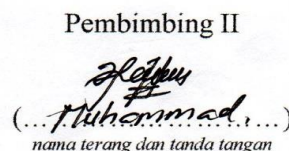 Pembimbing II
(....Muhammad,....)
nama terang dan tanda tangan